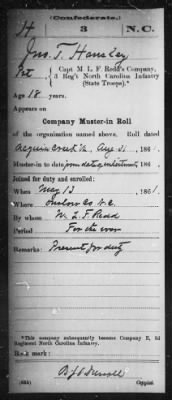 (Confederate.)
H 3 N.C.
Jno. T. Hansley
Pvt., Capt M. L. F. Redd's Company,
3 Reg't North Carolina Infantry
(State Troops).*
Age 18 years.
Appears on
Company Muster-in Roll
of the organization named above. Roll dated
Acquia Creek Va, Aug 31, 1861.
Muster-in to date from date of enlistment, 186 .
Joined for duty and enrolled:
When May 13, 1861.
Where Onslow Co. N.C.
By whom M. L. F. Redd
Period For the war
Remarks: Present for duty
*This company subsequently became Company E, 3d
Regiment North Carolina Infantry.
Book mark:
Copyist.